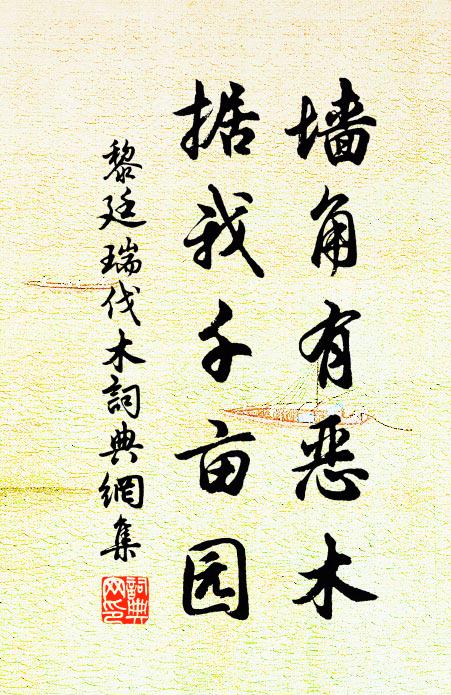 墙角有恶木
据我千亩园
黎廷瑞伐木詞典網集
詞典网印